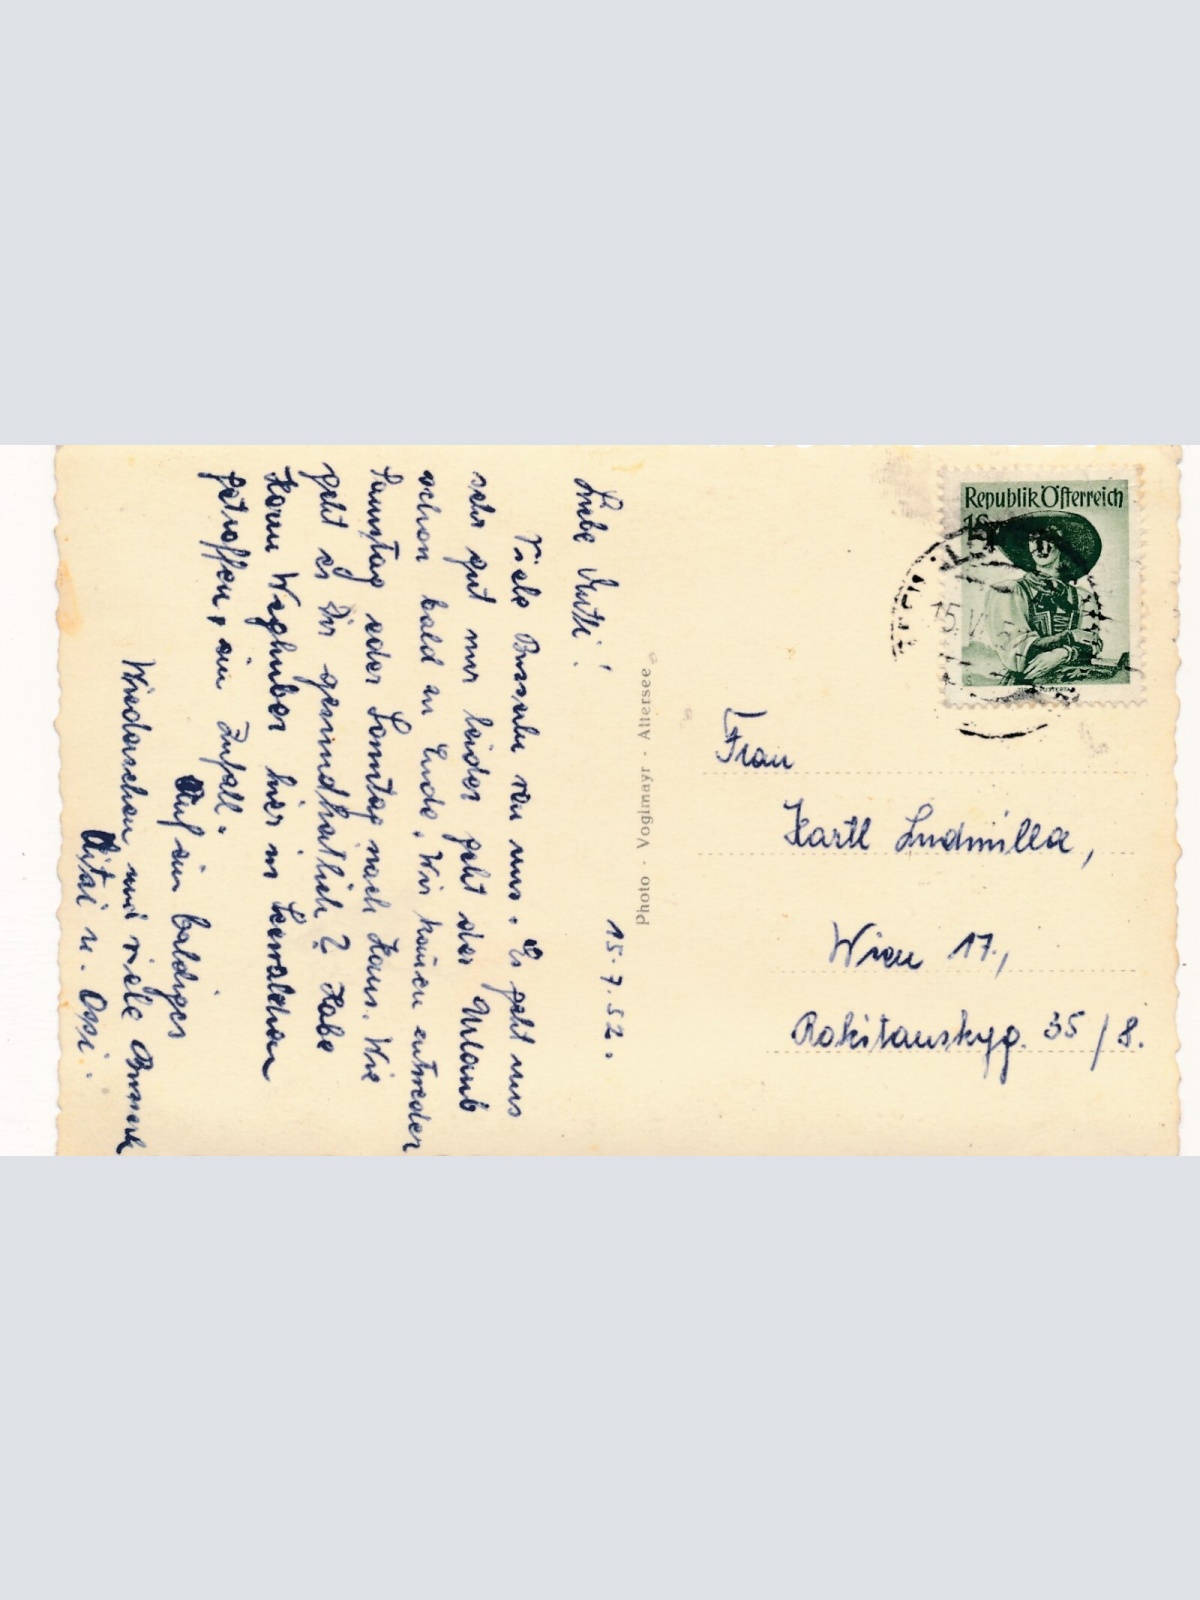 15.7.52.
Liebe Mutti!
Viele Busseln von uns. Es geht uns
sehr gut nur leider geht der Urlaub
schon bald zu Ende. Wir kommen entweder
Samstag oder Sonntag nach Haus. Wie
geht es Dir gesundheitlich? Habe
Herrn Weghuber hier in Seewalchen
getroffen, ein Zufall.
Auf ein baldiges
Wiedersehen und viele Busserl
u. Ossi.
Photo · Voglmayr · Attersee
Republik Österreich
15.V
Frau
Hartl Ludmilla,
Wien 17.,
Rokitanskyg. 35/8.